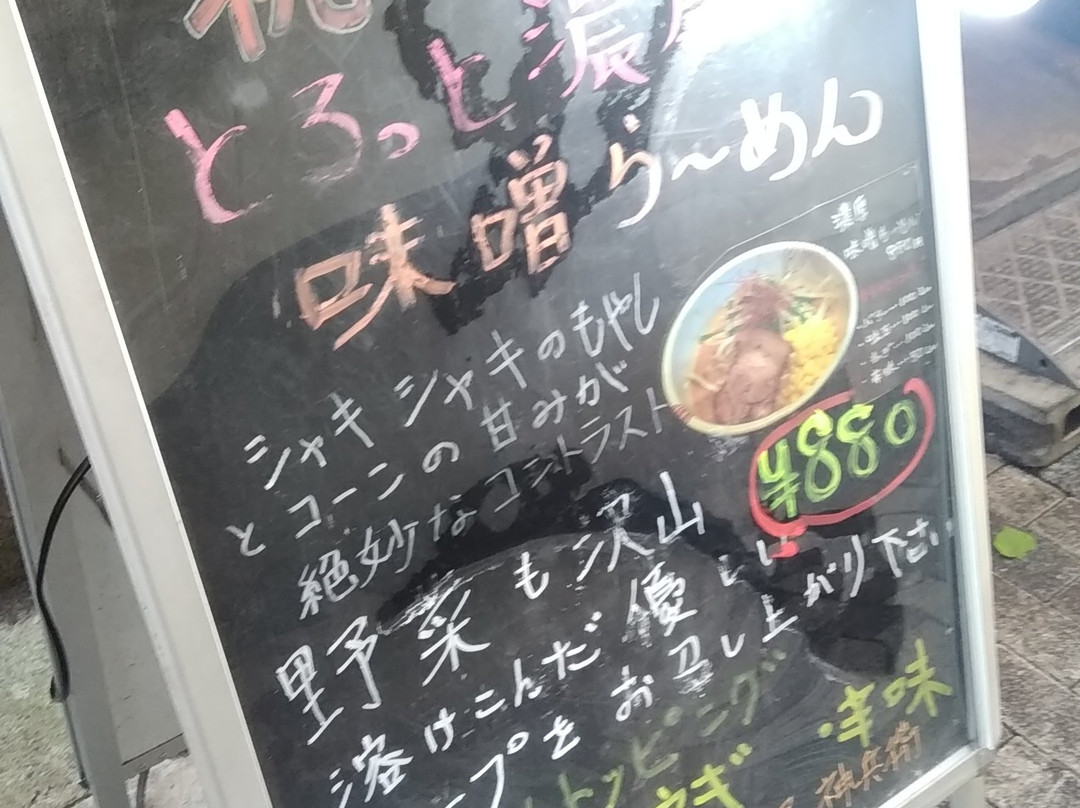 とろっと濃厚
味噌ら〜めん
シャキシャキのもやし
とコーンの甘みが
絶妙なコントラスト
¥880
野菜も沢山
溶けこんだ優しい
ープをお召し上がり下さい
トッピング
ネギ
・辛味
濃厚
味噌らーめん